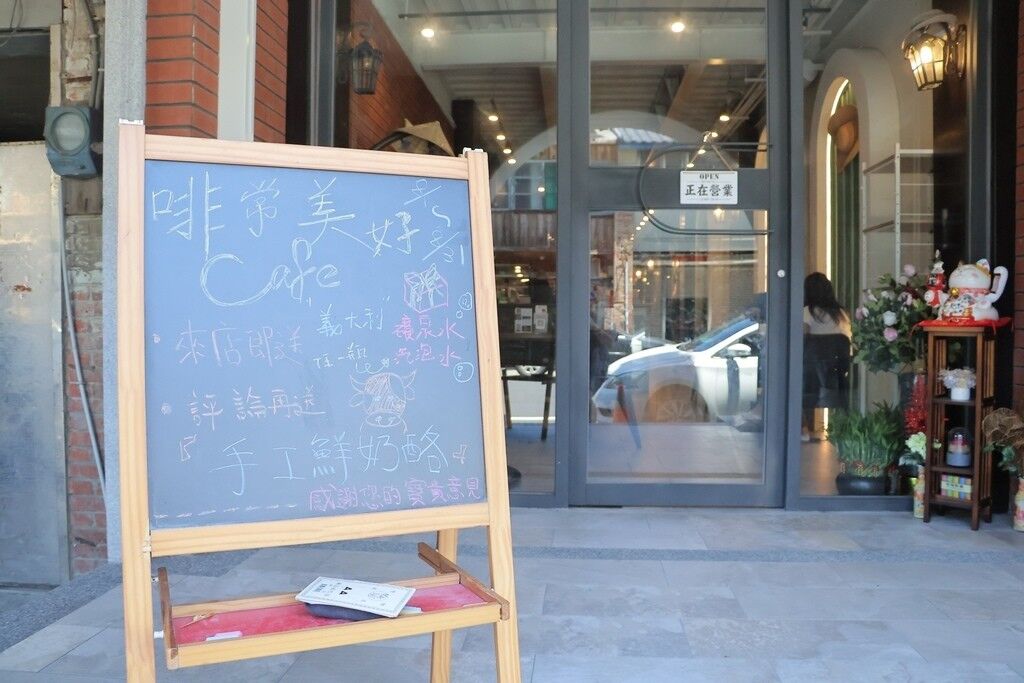 啡常美好
Cafe
義大利
礦泉水
氣泡水
來店即送
任
評論再送
手工鮮奶酪
感謝您的寶貴意見
OPEN
正在營業